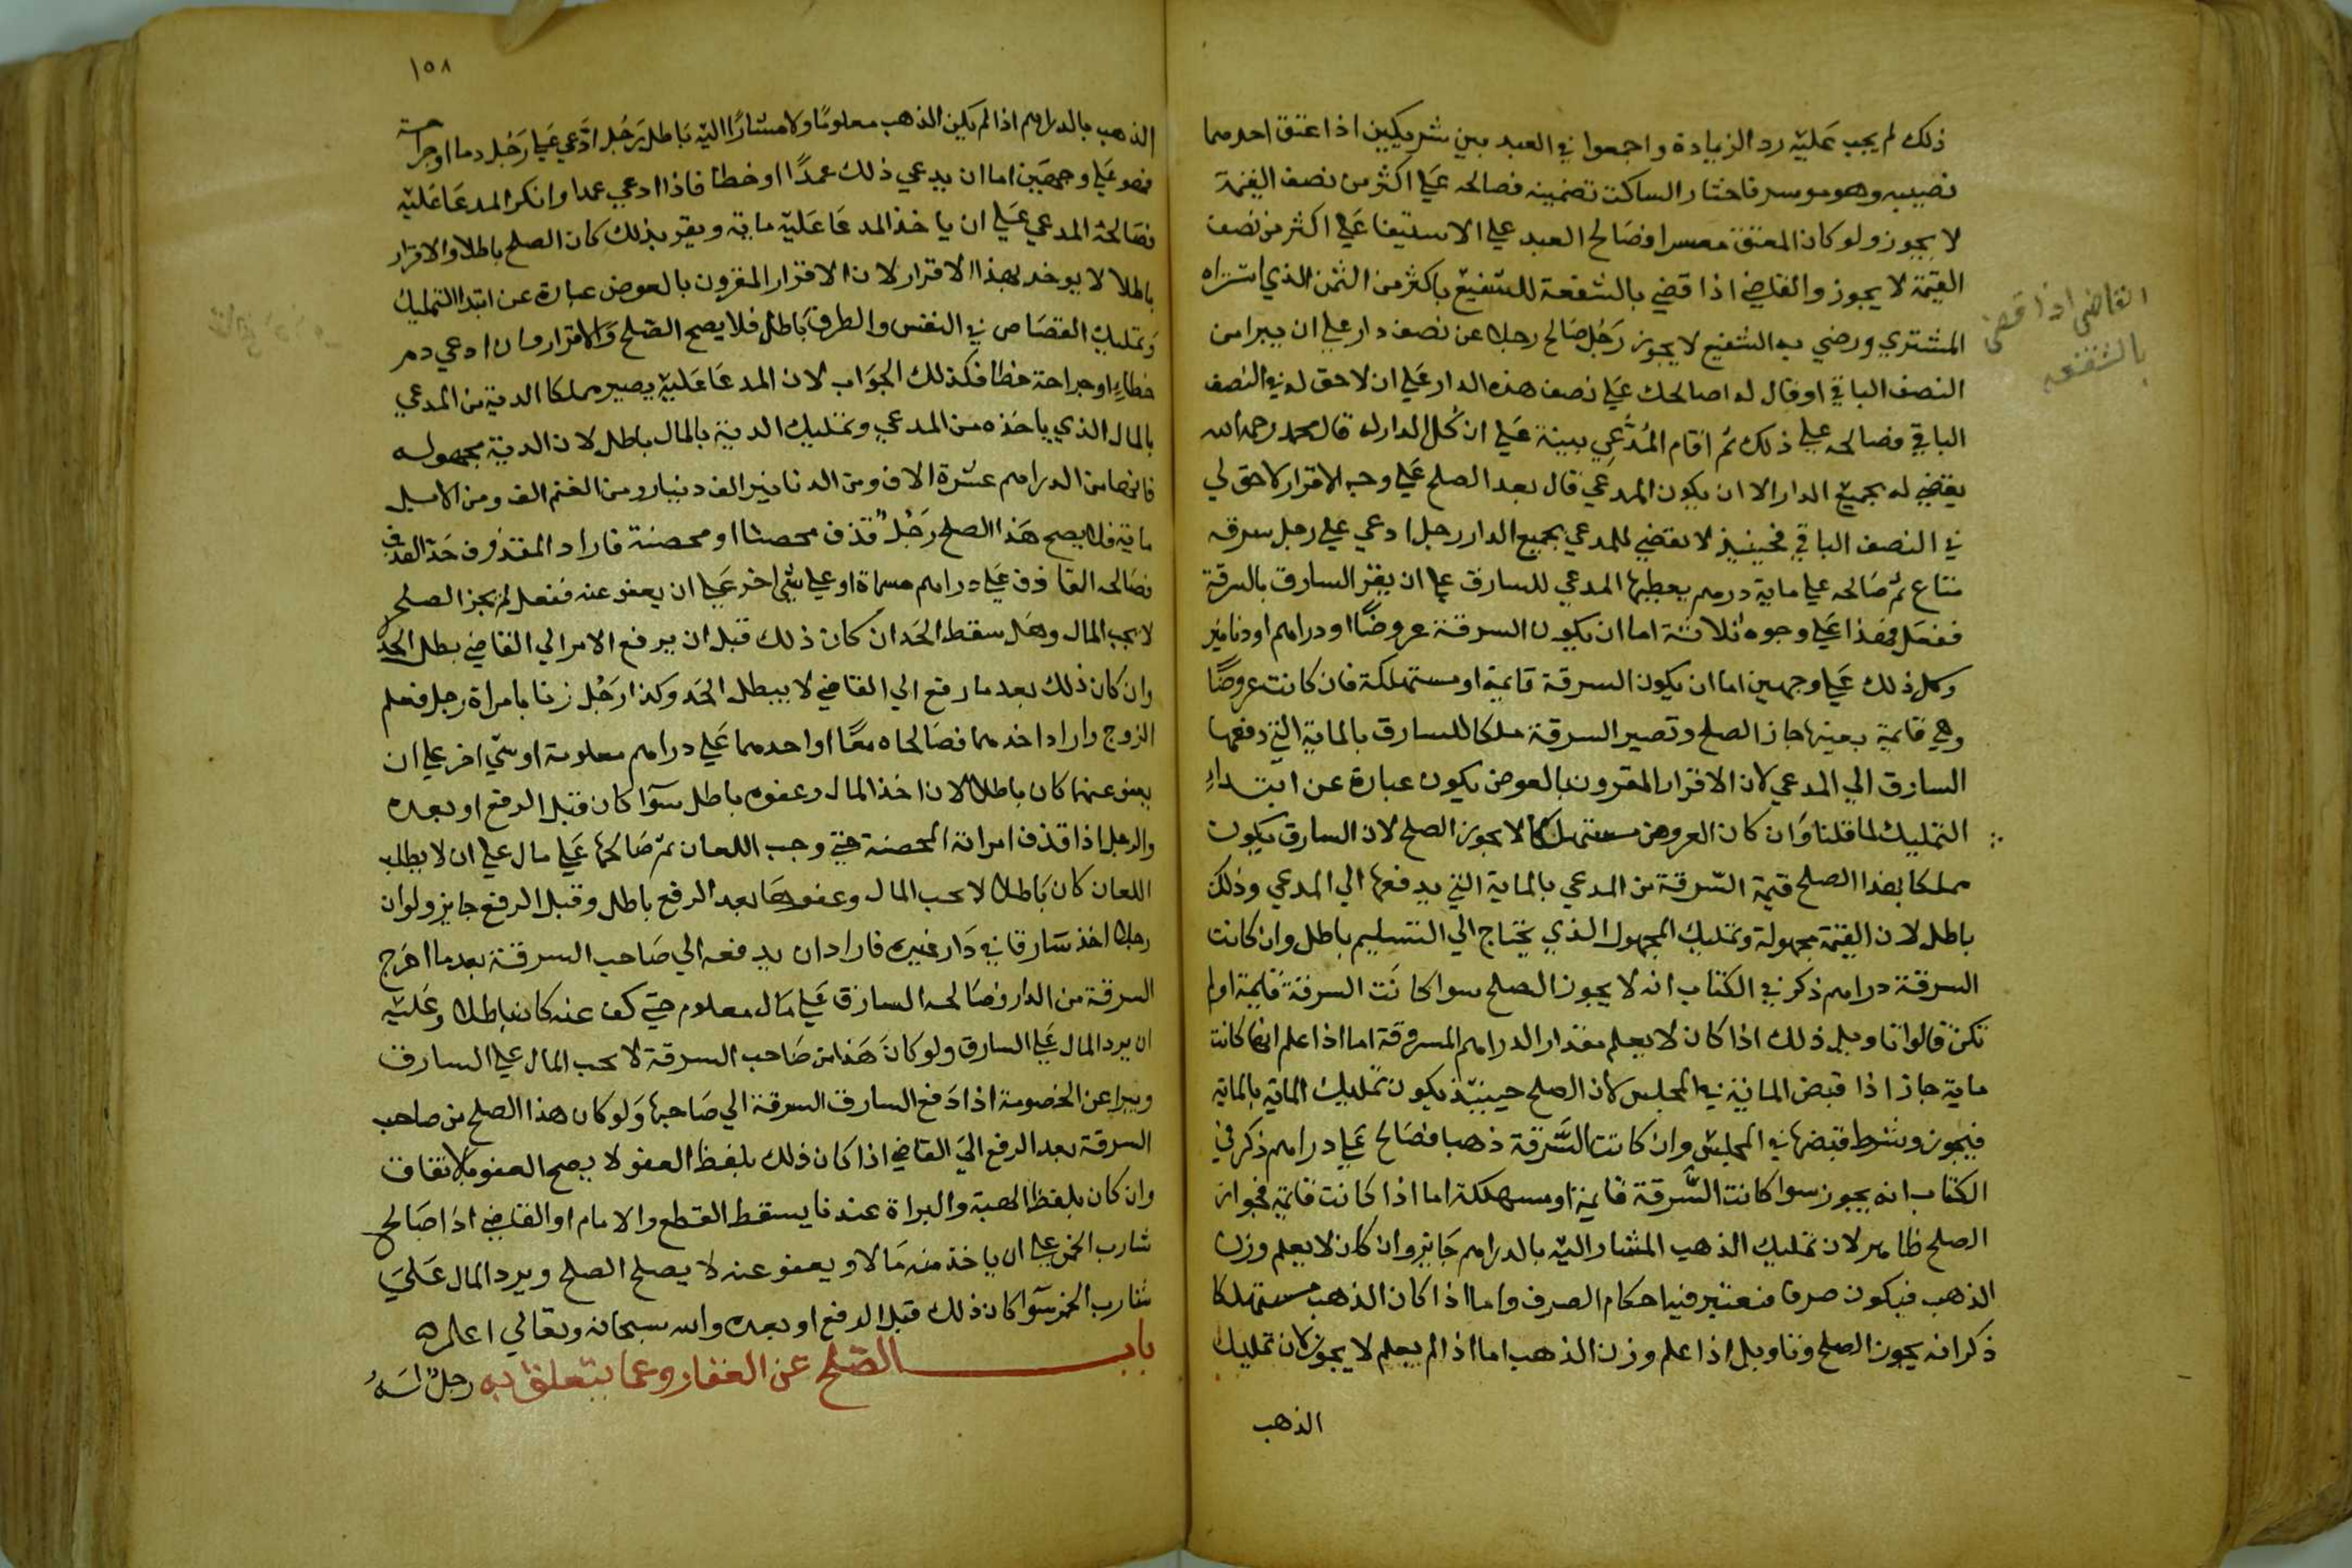 ذلك لم يجب عليه رد الزيادة واجمعوا في العبد بين شريكين اذا عتق احدهما
نصيبه وهو موسر فاختار الساكت تضمينه فصالحه علي اكثر من نصف القيمة
لا يجوز ولو كان المعتق معسرا فصالح العبد علي الاستيفا علي اكثر من نصف
القيمة لا يجوز والقاضي اذا قضي بالشفعة للشفيع باكثر من الثمن الذي اشتراه
المشتري ورضي به الشفيع لا يجوز رجل صالح رجلا عن نصف دار علي ان يبرا من
النصف الباقي او قال له اصالحك علي نصف هذه الدار علي ان لا حق له في النصف
الباقي فصالحه علي ذلك ثم اقام المدعي بينة علي ان كل الدار له قال محمد رحمه الله
يقضي له بجميع الدار الا ان يكون المدعي قال بعد الصلح علي وجه الاقرار لا حق لي
في النصف الباقي فحينيذ لا يقضي للمدعي بجميع الدار رجل ادعي علي رجل سرقه
متاع ثم صالحه علي ماية درهم يعطيها المدعي للسارق علي ان يقر السارق بالسرقة
ففعل فهذا علي وجوه ثلاثة اما ان يكون السرقة عروضا او دراهم او دنانير
وكل ذلك علي وجهين اما ان يكون السرقة قايمة او مستهلكة فان كانت عروضا
وهي قايمة بعينها جاز الصلح وتصير السرقة ملكا للسارق بالماية التي دفعها
السارق الي المدعي لان الاقرار المقرون بالعوض يكون عبارة عن ابتداء
التمليك لما قلنا وان كان العروض مستهلكا لا يجوز الصلح لان السارق يكون
مملكا بهذا الصلح قيمة السرقة من المدعي بالماية التي يدفعها الي المدعي وذلك
باطل لان القيمة مجهولة وتمليك المجهول الذي يحتاج الي التسليم باطل وان كانت
السرقة دراهم ذكر في الكتاب انه لا يجوز الصلح سوا كانت السرقة قايمة او لم
تكن قالوا تاويل ذلك اذا كان لا يعلم مقدار الدراهم المسروقة اما اذا علم انها كانت
ماية جاز اذا قبض الماية في المجلس لان الصلح حينيذ يكون تمليك الماية بالماية
فيجوز وشرط قبضها في المجلس وان كانت السرقة ذهبا فصالح علي دراهم ذكر في
الكتاب انه يجوز سوا كانت السرقة قايمة او مستهلكة اما اذا كانت قايمة فجواز
الصلح ظاهر لان تمليك الذهب المشار اليه بالدراهم جايز وان كان لا يعلم وزن
الذهب فيكون صرفا فنعتبر فيها احكام الصرف واما اذا كان الذهب مستهلكا
ذكر انه يجوز الصلح وتاويل اذا علم وزن الذهب اما اذا لم يعلم لا يجوز لان تمليك
الذهب
القاضي اذا قضي
بالشفعه
١٥٨
الذهب بالدراهم اذا لم يكن الذهب معلوما ولا مشارا اليه باطل رجل ادعي علي رجل دما او جراحة
فهو علي وجهين اما ان يدعي ذلك عمدا او خطا فاذا ادعي عمدا وانكر المدعا عليه
فصالحه المدعي علي ان ياخذ المدعا عليه ماية ويقر بذلك كان الصلح باطلا والاقرار
باطلا لا يوخد بهذا الاقرار لان الاقرار المقرون بالعوض عبارة عن ابتدا التمليك
وتمليك القصاص في النفس والطرف باطل فلا يصح الصلح والاقرار وان ادعي دم
خطاء او جراحة خطا فكذلك الجواب لان المدعا عليه يصير مملكا الدية من المدعي
بالمال الذي ياخذه من المدعي وتمليك الدية بالمال باطل لان الدية مجهوله
فانها من الدراهم عشرة الاف ومن الدنانير الف دينار ومن الغنم الف ومن الابل
ماية فلا يصح هذا الصلح رجل قذف محصنا او محصنة فاراد المقذوف حد القذف
فصالحه القاذف علي دراهم مسماة او علي شي اخر علي ان يعفو عنه ففعل لم يجز الصلح
لا يجب المال وهل سقط الحد ان كان ذلك قبل ان يرفع الامر الي القاضي بطل الحد
وان كان ذلك بعد ما رفع الي القاضي لا يبطل الحد وكذا رجل زنا بامراة رجل فعلم
الزوج واراد اخذهما فصالحاه معا او احدهما علي دراهم معلومة او شي اخر علي ان
يعفو عنهما كان باطلا لان اخذ المال وعفوه باطل سوا كان قبل الرفع او بعده
والرجل اذا قذف امراته المحصنة حتي وجب اللعان ثم صالحها علي مال علي ان لا يطلب
اللعان كان باطلا لا يجب المال وعفوها بعد الرفع باطل وقبل الرفع جايز ولو ان
رجلا اخذ سارقا في دار غيره فاراد ان يدفعه الي صاحب السرقة بعد ما اخرج
السرقة من الدار فصالحه السارق علي مال معلوم حتي كف عنه كان باطلا وعليه
ان يرد المال علي السارق ولو كان هذا من صاحب السرقة لا يجب المال علي السارق
ويبرا عن الخصومة اذا دفع السارق السرقة الي صاحبها ولو كان هذا الصلح من صاحب
السرقة بعد الرفع الي القاضي اذا كان ذلك بلفظ العفو لا يصح العفو بالاتفاق
وان كان بلفظ الهبة والبراة عندنا يسقط القطع والامام او القاضي اذا صالح
شارب الخمر علي ان ياخذ منه مالا ويعفو عنه لا يصلح الصلح ويرد المال علي
شارب الخمر سوا كان ذلك قبل الرفع او بعده والله سبحانه وتعالي اعلم
باب الصلح عن العقار وعما يتعلق به رجل